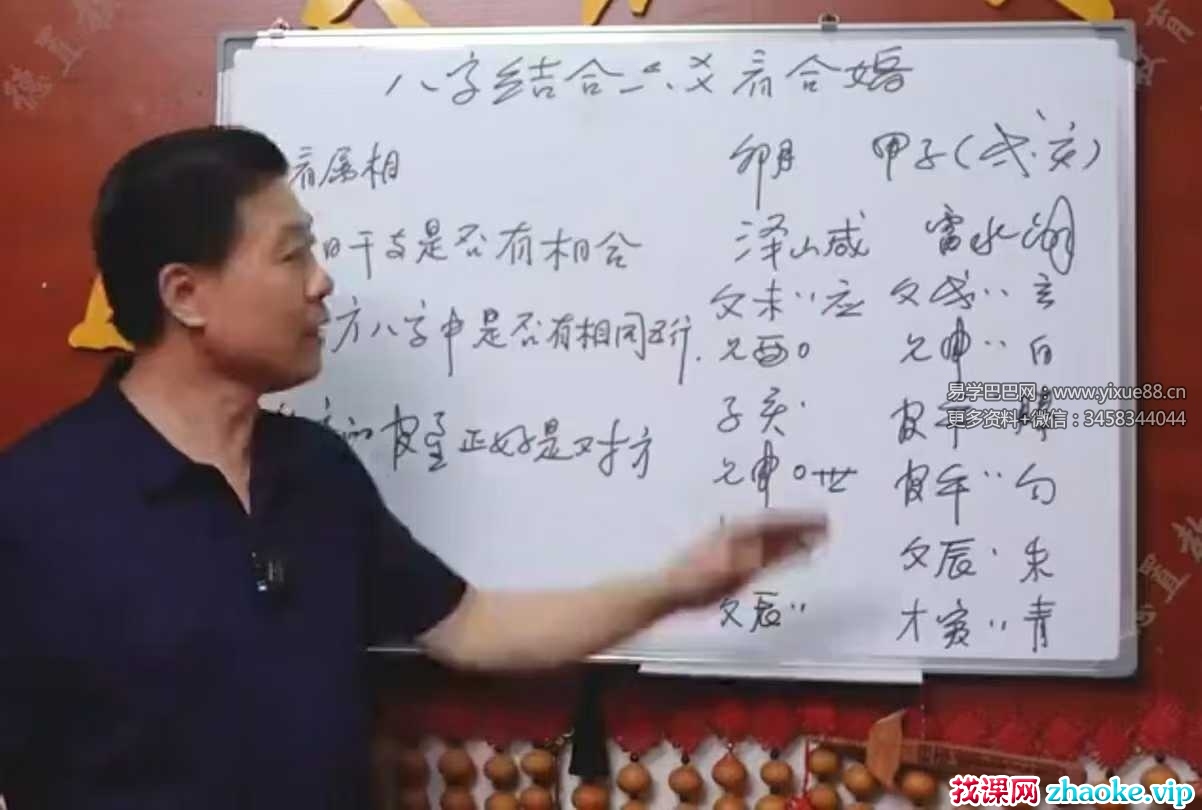 八字结合六爻看合婚
看属相
日干支是否有相合
方八字中是否有相同五行.
皮宝正好是对方
卯月 甲子(戌、亥)
泽山咸 雷水涣
父未〃应 父戌〃玄
兄酉O 兄申〃白
子亥、
兄申O世 官午〃勾
父辰、朱
父辰〃 才寅〃青
易学巴巴网：www.yixue88.cn
更多资料+微信：3458344044
找课网 zhaoke.vip